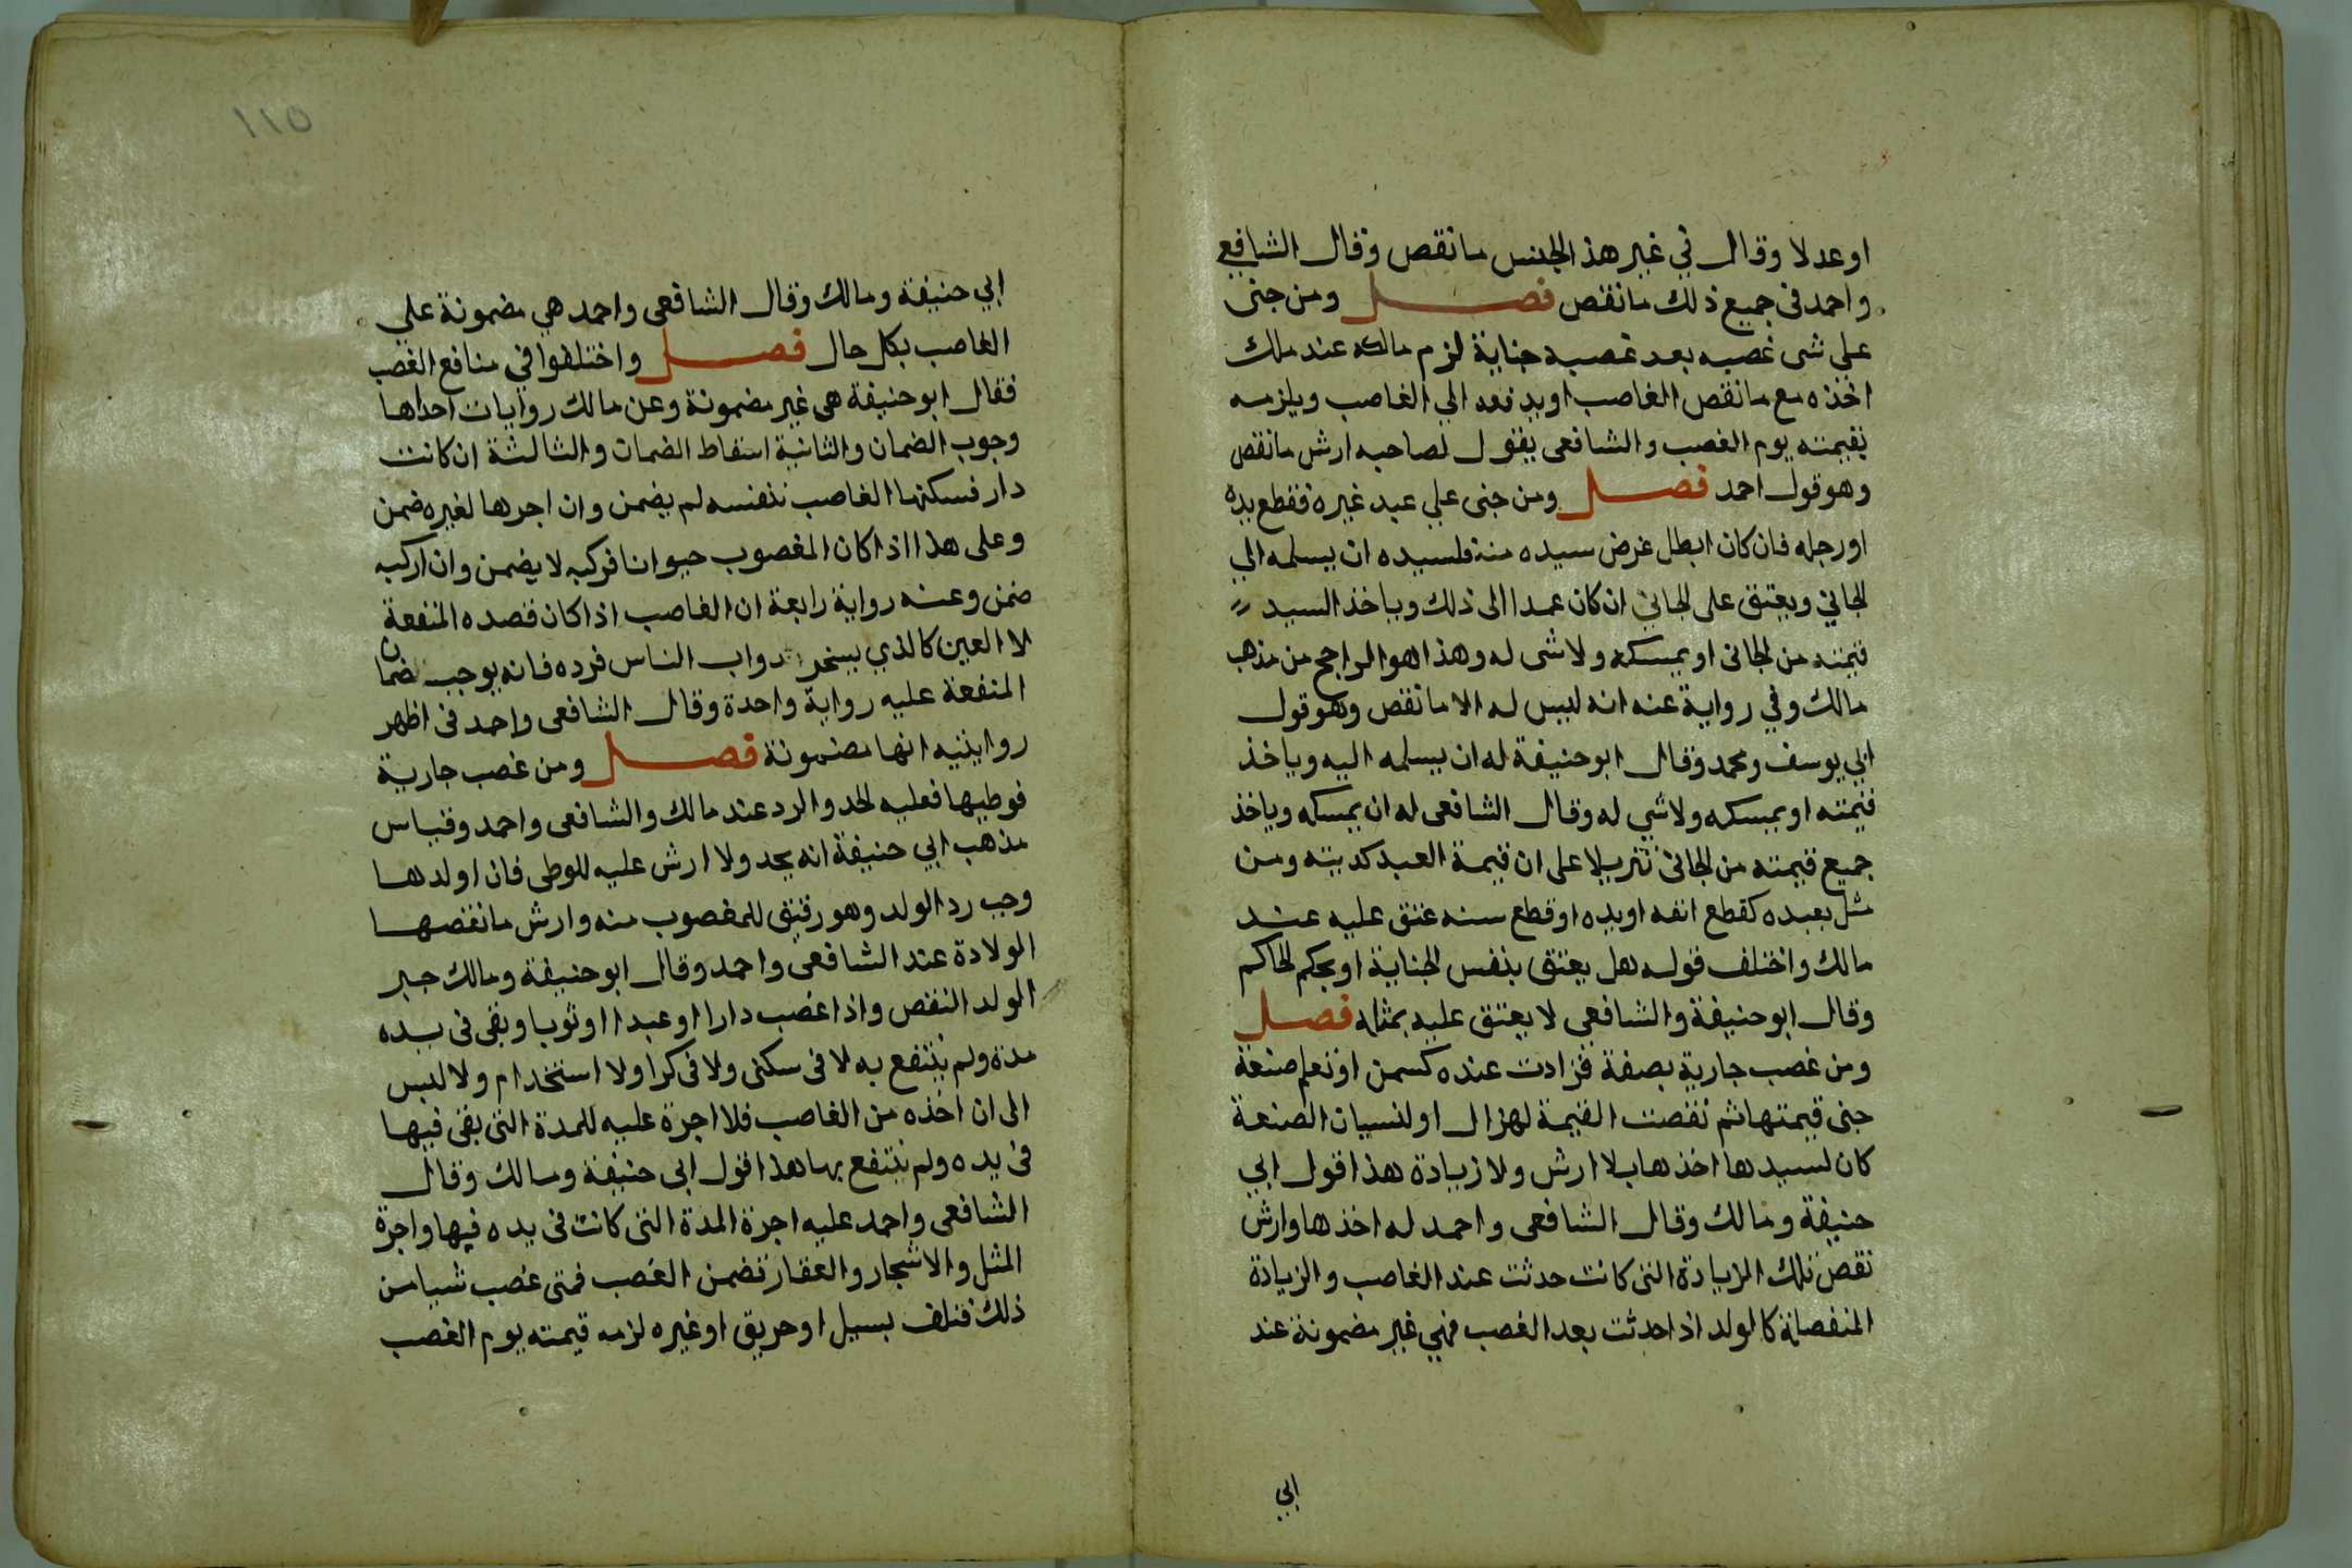 او عدلا وقال في غير هذ الجنس ما نقص وقال الشافعي
واحمد فى جميع ذلك ما نقص فصل ومن جنى
علي شى غصبه بعد غصبه جناية لزم مالكه عند ملك
اخذه مع ما نقص الغاصب او يدفعه الي الغاصب ويلزمه
بقيمته يوم الغصب والشافعى يقول لصاحبه ارش ما نقص
وهو قول احمد فصل ومن جنى علي عبد غيره فقطع يده
او رجله فان كان ابطل غرض سيده منه فلسيده ان يسلمه الي
الجاني ويعتق على الجاني ان كان عمدا الى ذلك وياخذ السيد
قيمته من الجانى او يمسكه ولا شى له وهذا هو الراجح من مذهب
مالك وفي رواية عنه انه ليس له الا ما نقص وهو قول
ابي يوسف ومحمد وقال ابو حنيفة له ان يسلمه اليه وياخذ
قيمته او يمسكه ولا شي له وقال الشافعى له ان يمسكه وياخذ
جميع قيمته من الجانى تنزيلا على ان قيمة العبد كديته ومن
مثل بعبده كقطع انفه او يده او قطع سنه عتق عليه عند
مالك واختلف قوله هل يعتق بنفس الجناية او بحكم الحاكم
وقال ابو حنيفة والشافعي لا يعتق عليه بمثله فصل
ومن غصب جارية بصفة فزادت عنده كسمن او تعلم صنعة
جنى قيمتها ثم نقصت القيمة لهزال او لنسيان الصنعة
كان لسيدها اخذها بلا ارش ولا زيادة هذا قول ابي
حنيفة ومالك وقال الشافعى واحمد له اخذها وارش
نقص تلك الزيادة التى كانت حدثت عند الغاصب والزيادة
المنفصلة كالولد اذا حدثت بعد الغصب فهي غير مضمونة عند
ابي
١١٥
ابي حنيفة ومالك وقال الشافعى واحمد هي مضمونة علي
الغاصب بكل حال فصل واختلفوا في منافع الغصب
فقال ابو حنيفة هى غير مضمونة وعن مالك روايات احداها
وجوب الضمان والثانية اسقاط الضمان والثالثة ان كانت
دار فسكنها الغاصب بنفسه لم يضمن وان اجرها لغيره ضمن
وعلى هذا اذا كان المغصوب حيوانا فركبه لا يضمن وان اركبه
ضمن وعنه رواية رابعة ان الغاصب اذا كان قصده المنفعة
لا العين كالذي يسخر دواب الناس فرده فانه يوجب ضمان
المنفعة عليه رواية واحدة وقال الشافعى واحمد فى اظهر
روايتيه انها مضمونة فصل ومن غصب جارية
فوطيها فعليه الحد والرد عند مالك والشافعى واحمد وقياس
مذهب ابي حنيفة انه يحد ولا ارش عليه للوطى فان اولدها
وجب رد الولد وهو رقيق للمغصوب منه وارش ما نقصها
الولادة عند الشافعى واحمد وقال ابو حنيفة ومالك جبر
الولد النقص واذا غصب دارا او عبدا او ثوبا وبقى فى يده
مدة ولم ينتفع به لا فى سكنى ولا فى كرا ولا استخدام ولا لبس
الى ان اخذه من الغاصب فلا اجرة عليه للمدة التى بقى فيها
فى يده ولم ينتفع بها هذا قول ابى حنيفة ومالك وقال
الشافعى واحمد عليه اجرة المدة التى كانت فى يده فيها واجرة
المثل والاشجار والعقار تضمن الغصب فمتى غصب شيا من
ذلك فتلف بسيل او حريق او غيره لزمه قيمته يوم الغصب